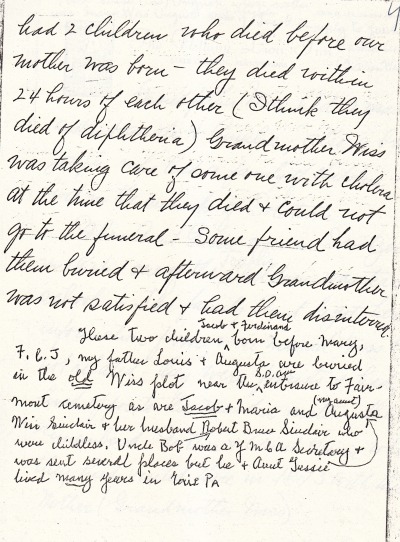 4
had 2 children who died before our
mother was born – they died within
24 hours of each other (I think they
died of diphtheria) Grandmother Wiss
was taking care of some one with cholera
at the time that they died & could not
go to the funeral – Some friend had
them buried & afterward Grandmother
was not satisfied & had them disinterred
Jacob & Ferdinand
These two children, born before Mary,
F. C. J, my father Louis & Augusta are buried
S.O. Ave
in the old Wiss plot near the entrance to Fair-
(my aunt)
mont cemetery as are Jacob & Maria and Augusta
Wiss Sinclair & her husband Robert Bruce Sinclair who
were childless. Uncle Bob was a YMCA Secretary &
was sent several places but he & Aunt Gussie
lived many years in Erie PA